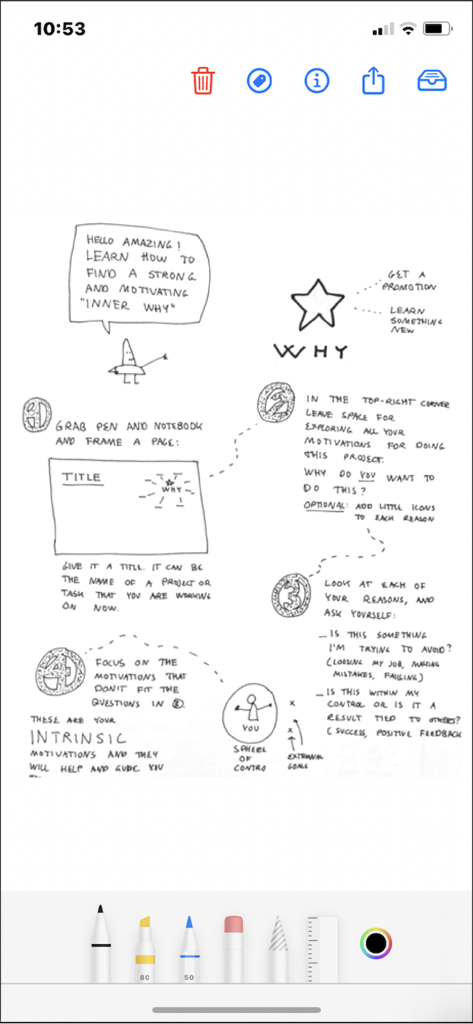 10:53
HELLO AMAZING!
LEARN HOW TO
FIND A STRONG
AND MOTIVATING
"INNER WHY"
GET A
PROMOTION
LEARN
SOMETHING
NEW
WHY
1
GRAB PEN AND NOTEBOOK
AND FRAME A PAGE:
TITLE
WHY
GIVE IT A TITLE. IT CAN BE
THE NAME OF A PROJECT OR
TASK THAT YOU ARE WORKING
ON NOW.
2
IN THE TOP-RIGHT CORNER
LEAVE SPACE FOR
EXPLORING ALL YOUR
MOTIVATIONS FOR DOING
THIS PROJECT.
WHY DO YOU WANT TO
DO THIS?
OPTIONAL: ADD LITTLE ICONS
TO EACH REASON
3
LOOK AT EACH OF
YOUR REASONS, AND
ASK YOURSELF:
_ IS THIS SOMETHING
I'M TRYING TO AVOID?
(LOOSING MY JOB, MAKING
MISTAKES, FAILING)
_ IS THIS WITHIN MY
CONTROL OR IS IT A
RESULT TIED TO OTHERS?
(SUCCESS, POSITIVE FEEDBACK
4
FOCUS ON THE
MOTIVATIONS THAT
DON'T FIT THE
QUESTIONS IN 3.
THESE ARE YOUR
INTRINSIC
MOTIVATIONS AND THEY
WILL HELP AND GUIDE YOU
YOU
SPHERE
OF
CONTRO
EXTRINSIC
GOALS
80
50